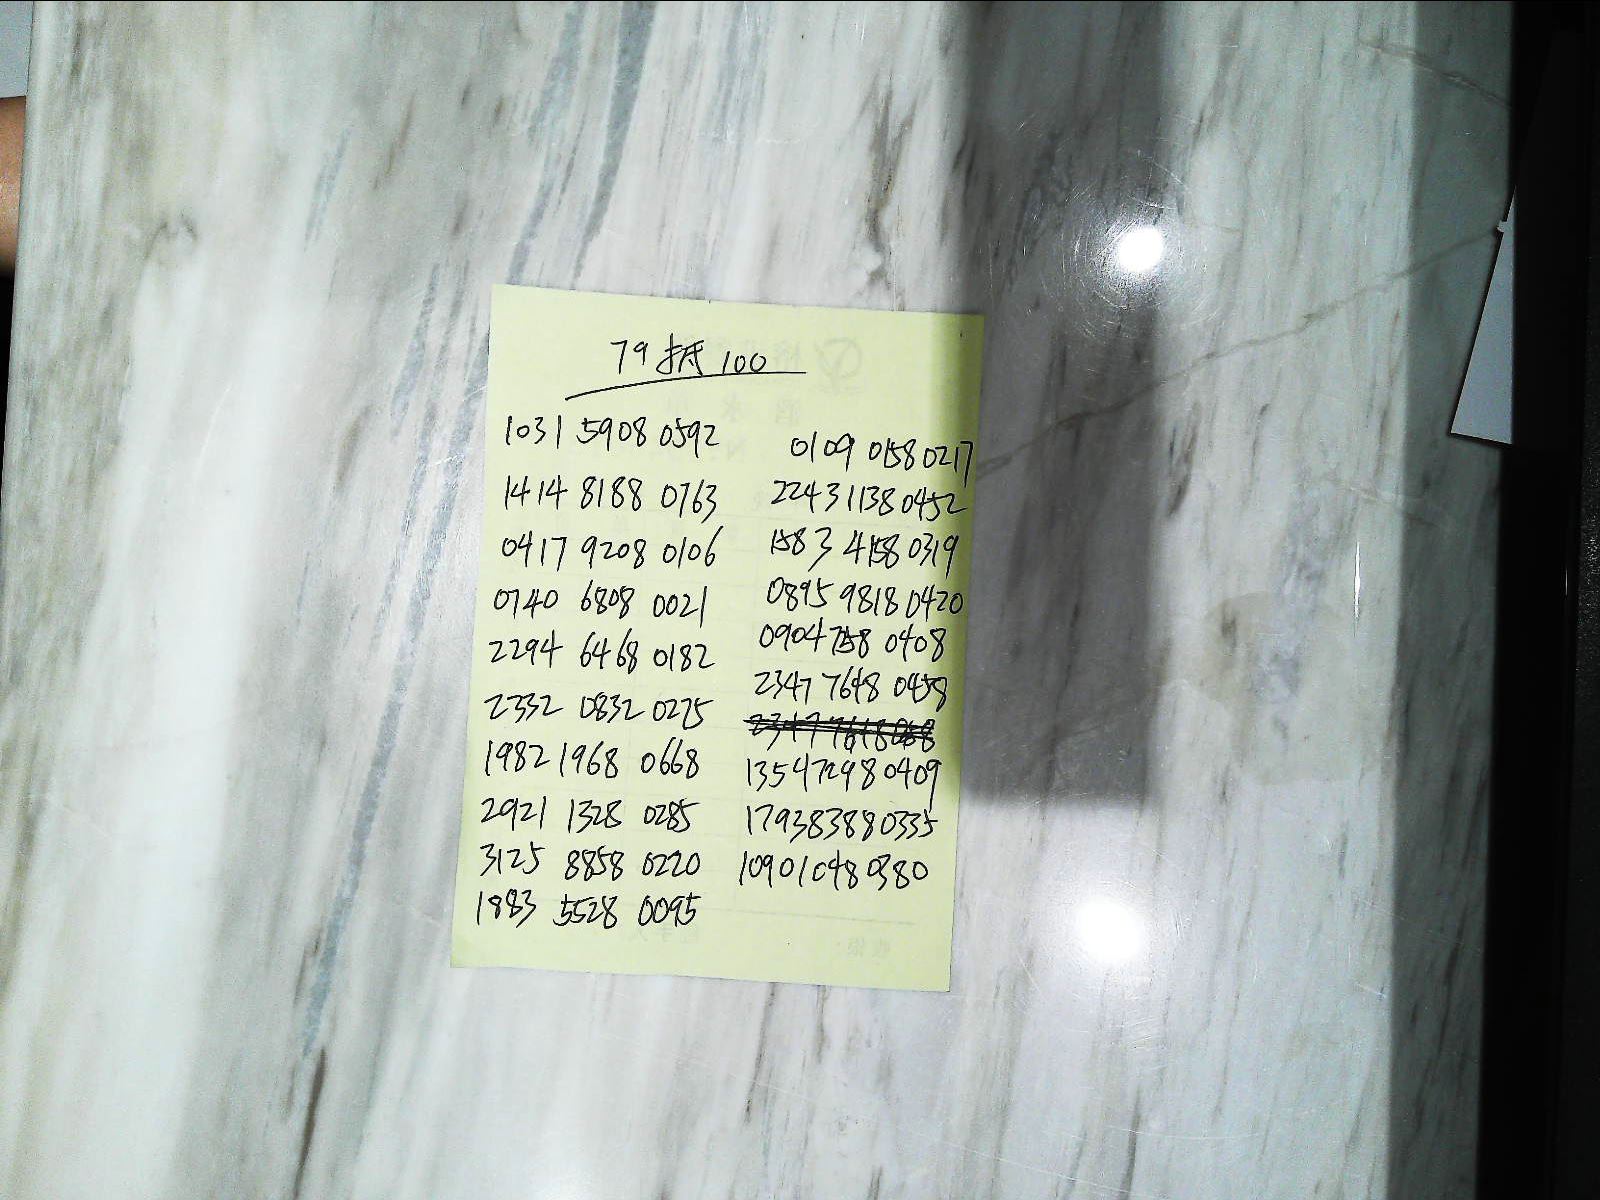 79抵100
1031 5908 0592
1414 8188 0763
0417 9208 0106
0740 6808 0021
2294 6468 0182
2332 0832 0275
1982 1968 0668
2921 1328 0285
3125 8858 0220
1883 5528 0095
0109 0158 0217
2243 1138 0452
1583 4158 0319
0895 9818 0420
0904 7158 0408
2347 7648 0458
1354 7298 0409
1793 8388 0335
1090 1048 0380